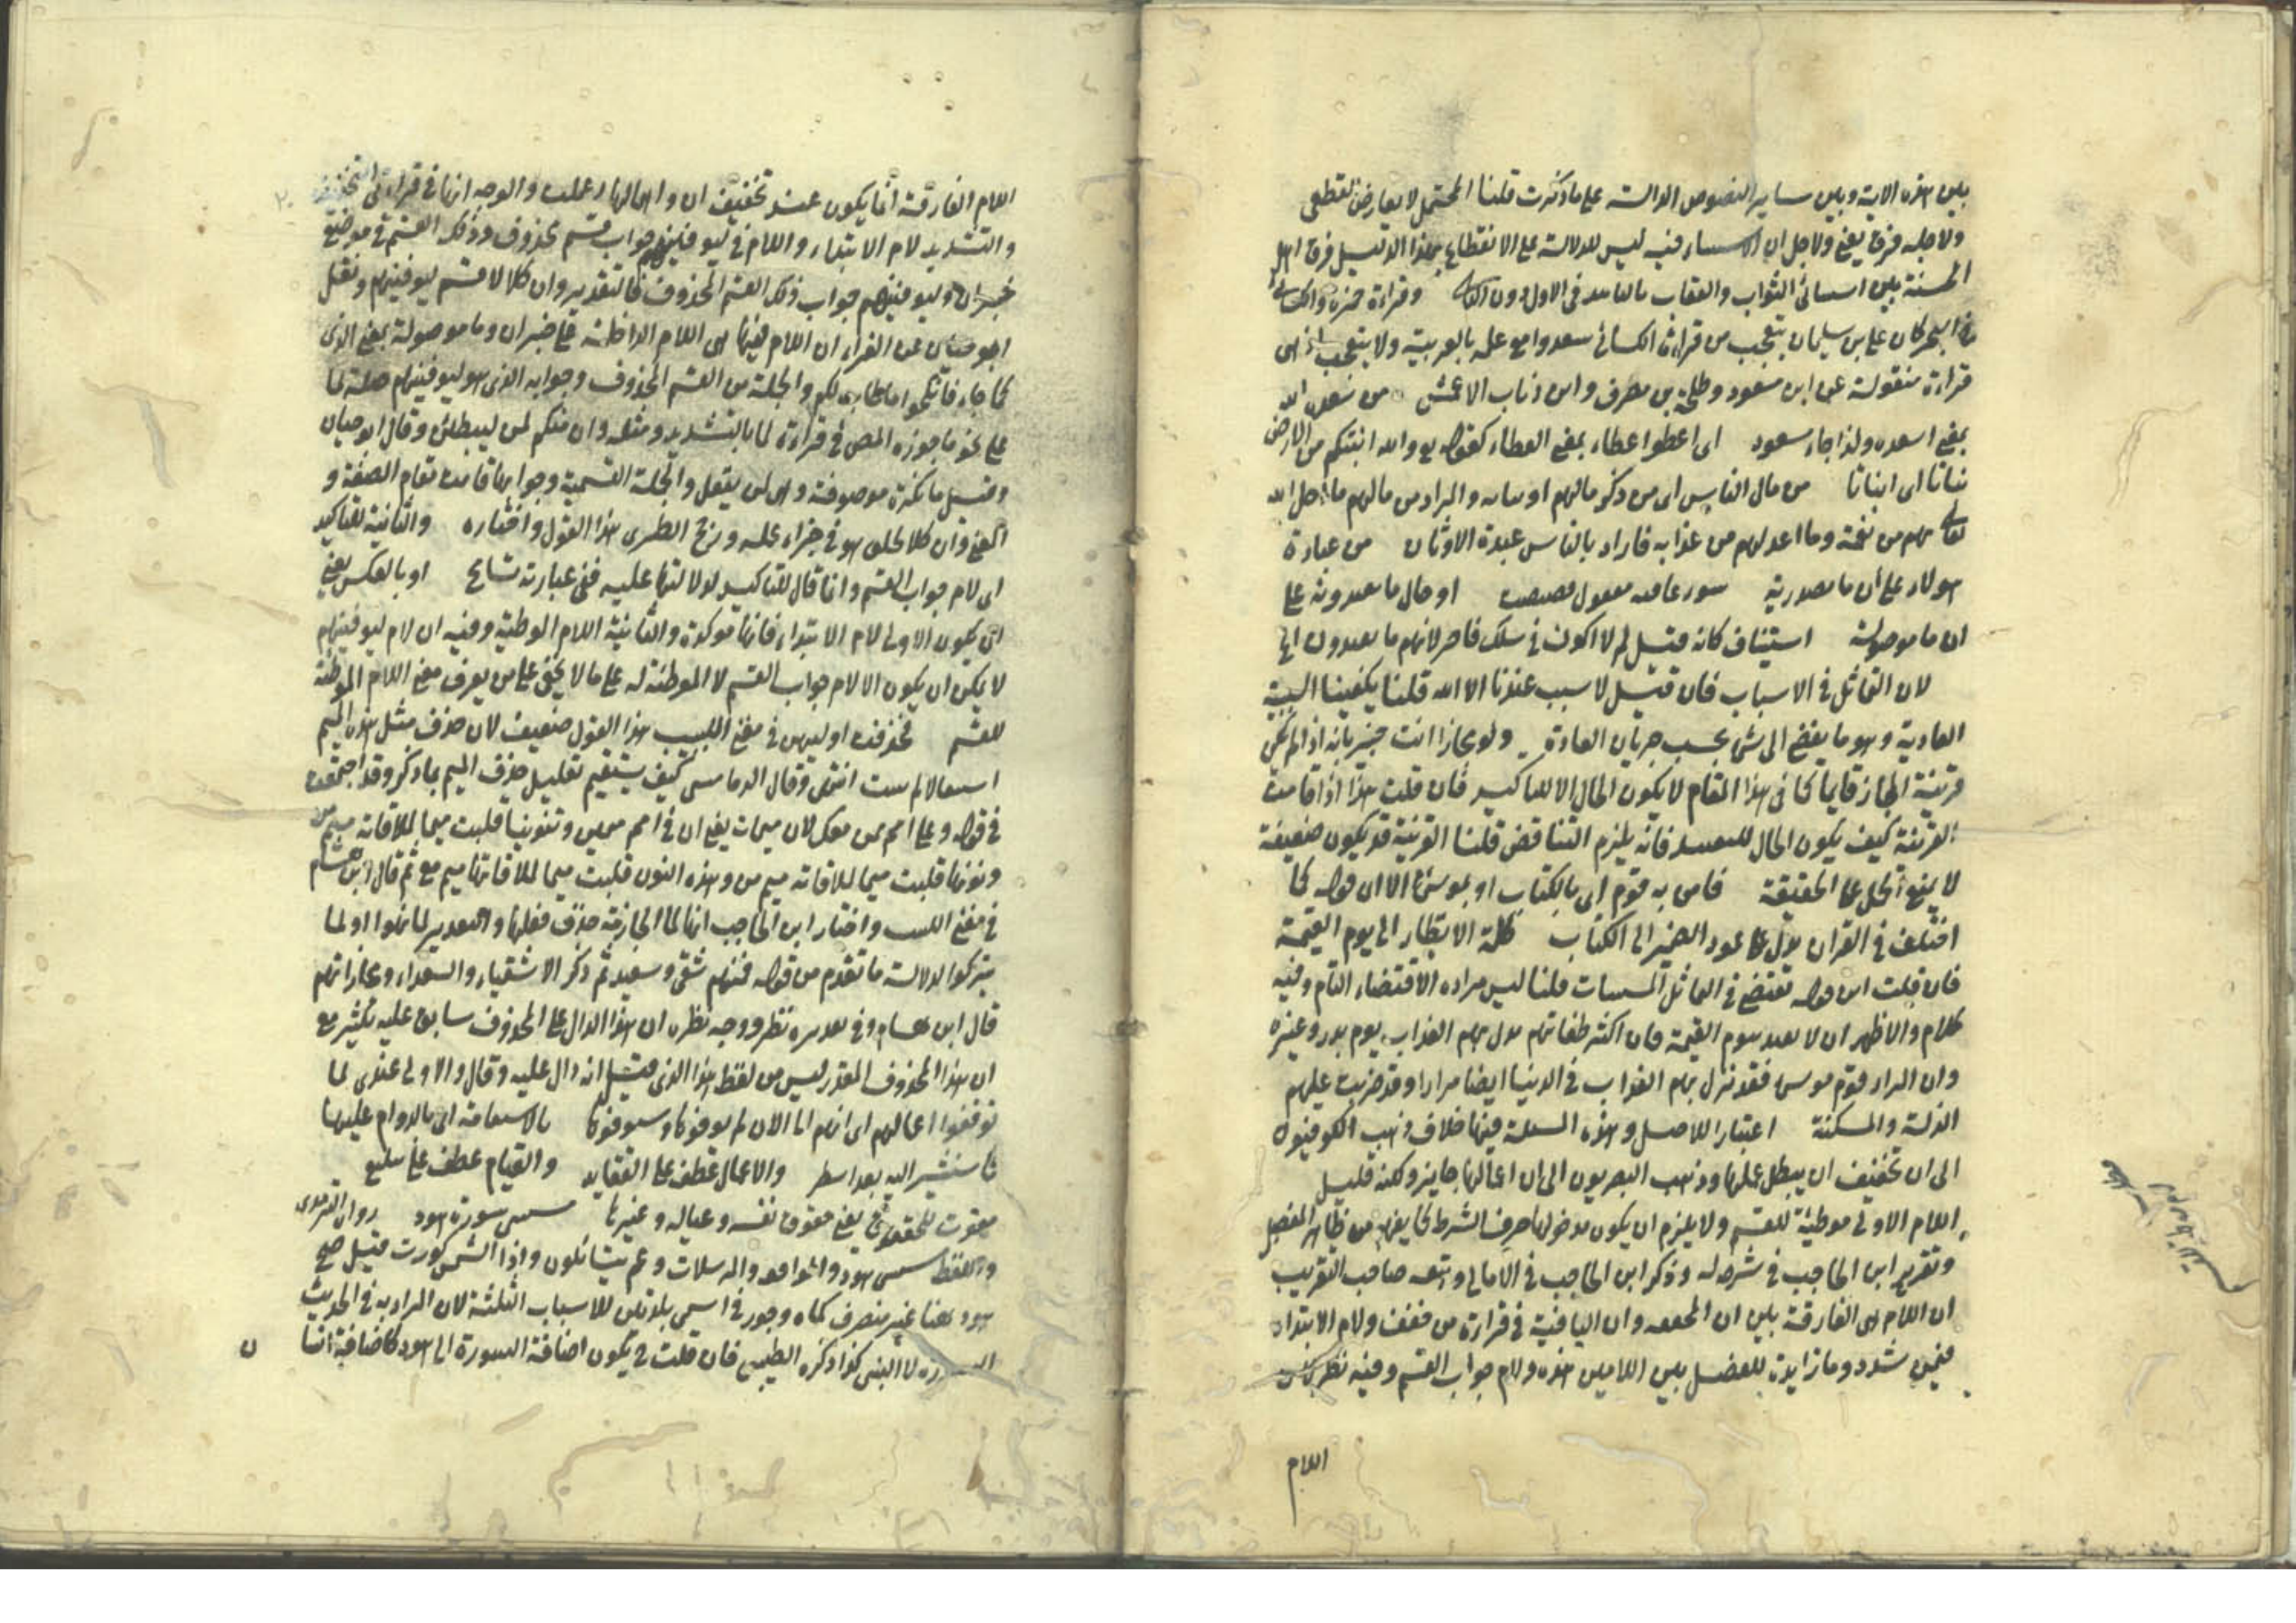 بين هذه الاية وبين ساير النصوص الدالة على ما ذكرت قلنا المحتمل لا يعارض القطعى
ولاجله فرق يعنى ولاجل ان الاستثناء فيه ليس للدلالة على الانقطاع بهذا الدليل فرق اهل
السنة بين الثواب والعقاب بالتابيد فى الاول دون الثانى وقراءة حمزة والكسائى
كان على بن سليمان يتعجب من قراءة الكسائى سعدوا مع علمه بالعربية ولا يتعجب اذ هى
قراءة منقولة عن ابن مسعود وطلحة بن مصرف وابن وثاب الاعمش من سعده الله
بمعنى اسعده ولذا جاء مسعود اى اعطوا عطاء بمعنى العطاء كقوله تع والله انبتكم من الارض
نباتا اى انباتا من مال الناس اى من ذكر مالهم والمراد من مالهم ما احل الله
تعالى بهم من نقمة وما اعد لهم من عذابه فاراد بالناس عبدة الاوثان من عبادة
هولاء على ان ما مصدرية او حال ما يعبدونه على
ان ما موصولة استيناف كانه قيل لم لا اكون فى سلك لانهم ما يعبدون الخ
لان التماثل فى الاسباب فان قيل لا سبب عندنا الا الله قلنا يكفينا السببية
العادية وهو ما يفضى الى شى بحسب جريان العادة ولو مجازا انت خبير بانه اذا لم يكن
قرينة المجاز قايما كما فى هذا المقام لا يكون الحال الا للتاكيد فان قلت هذا اذا قامت
القرينة كيف يكون الحال للتقييد فانه يلزم التناقض قلنا القرينة قد يكون ضعيفة
لا يمنع الحمل على الحقيقة فامن به قوم اى بالكتاب او بموسى الا ان قوله كما
اختلف فى القران يدل على عود الضمير الى الكتاب كلمة الانظار الى يوم القيمة
فان قلت اين قوله تقتضى فى التماثل المسببات قلنا ليس مراده الاقتضاء التام وفيه
كلام والاظهر ان لا يقيد بيوم القيمة فان اكثر طغاتهم نزل بهم العذاب يوم بدر وغيره
وان المراد قوم موسى فقد نزل بهم العذاب فى الدنيا ايضا مرارا وقد ضربت عليهم
الذلة والمسكنة اعتبارا للاصل وهذه المسئلة فيها خلاف ذهب الكوفيون
الى ان تخفيف ان يبطل عملها وذهب البصريون الى ان اعمالها جايز ولكنه قليل
اللام الاولى موطئة للقسم ولا يلزم ان يكون مدخولها حرف الشرط كما يفهم من ظاهر المفصل
وتقرير ابن الحاجب فى شرحه له وذكر ابن الحاجب فى الامالى وتبعه صاحب التقريب
ان اللام هى الفارقة بين ان المخففه وان النافية فى قراءة من خفف ولام الابتداء
فيمن شدد وما زايدة للفصل بين اللامين هذه ولام جواب القسم وفيه نظر لان
اللام
اللام الفارقة انما يكون عند تخفيف ان واهمالها اعملت والوجه انها فى قراءتى التخفيف
والتشديد لام الابتداء واللام فى ليوفينهم جواب قسم محذوف وذلك القسم فى موضع
خبر ان وليوفينهم جواب ذلك القسم المحذوف فالتقدير وان كلا لاقسم ليوفينهم ونقل
ابو حيان عن الفراء ان اللام فيها هى اللام الداخلة على خبر ان وما موصولة بمعنى الذى
كما جاء فانكحوا ما طاب لكم والجملة من القسم المحذوف وجوابه الذى هو ليوفينهم صلة لما
على نحو ما جوزه المص فى قراءة لما بالتشديد ومثله وان منكم لمن ليبطئن وقال ابو حيان
وقيل ما نكرة موصوفة وهى لمن يعقل والجملة القسمية وجوابها قامت مقام الصفة و
المعنى وان كلا لخلق هو فى جزاء عمله ورجح الطبرى هذا القول واختاره والثانية للتاكيد
اى لام جواب القسم وانما قال للتاكيد لدلالتها عليه ففى عبارته تسامح او بالعكس يعنى
ان يكون الاولى لام الابتداء فانها موكدة والثانية اللام الموطئة وفيه ان لام ليوفينهم
لا يمكن ان يكون الا لام جواب القسم لا الموطئة له على ما لا يخفى على من يعرف معنى اللام الموطئة
للقسم فحذفت اوليهن فى مغنى اللبيب هذا القول ضعيف لان حذف مثل هذه الميم
استثقالا لم يثبت انتهى وقال الدمامينى كيف يستقيم تعليل حذف الميم بما ذكر وقد اجتمعت
فى قوله وعلى امم ممن معك ثمان ميمات يعنى ان فى امم ميمين وتنوينا قلبت ميما لملاقاته ميم من
ونونها قلبت ميما لملاقاته ميم من وهذه النون قلبت ميما لملاقاتها ميم مع ثم قال ابن هشام
فى مغنى اللبيب واختار ابن الحاجب انها لما الجازمة حذف فعلها والتقدير لما يهملوا او لما
يتركوا لدلالة ما تقدم من قوله فمنهم شقى وسعيد ثم ذكر الاشقياء والسعداء ومجازاتهم
قال ابن هشام وفى تقديره نظر ووجه نظره ان هذا الدال على المحذوف سابق عليه بكثير مع
ان هذا المحذوف المقدر ليس من لفظ هذا الذى قيل انه دال عليه وقال والاولى عندى لما
توفوا اعمالهم اى انهم الى الان لم يوفوها وسيوفونها بالاستقامة اى بالدوام عليها
كما سنشير اليه بعد اسطر والاعمال عطف على العقايد والقيام عطف على تبليغ
مفوت للحقوق يعنى حقوق نفسه وعياله وغيرها سورة هود رواه الترمذى
واللفظ هود والواقعه والمرسلات وعم يتسائلون واذا الشمس كورت قيل صح
هود هنا غير منصرف كماه وجور فى اسمى بلدتين للاسباب الثلثة لان المراد به فى الحديث
السورة لا النبى كذا ذكره الطيبى فان قلت فح يكون اضافة السورة الى هود كاضافة انسا